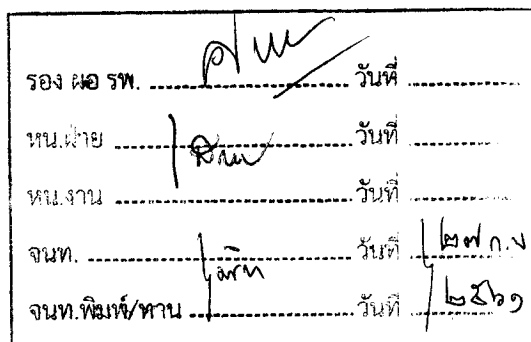 รอง ผอ รพ. .................... วันที่ ....................
หน.ฝ่าย .................... วันที่ ....................
หน.งาน .................... วันที่ ....................
จนท. .................... วันที่ ๒๗ ก.ย
จนท.พิมพ์/ทาน .................... วันที่ ๒๕๖๑